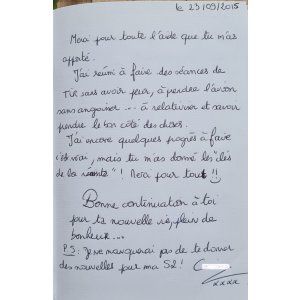 le 23/09/2015
Merci pour toute l'aide que tu m'as
apporté.
J'ai réussi à faire des séances de
TIR sans avoir peur, à prendre l'avion
sans angoisser ... à relativiser et savoir
prendre le bon côté des choses.
J'ai encore quelques progrès à faire
c'est vrai, mais tu m'as donné les "clés
de la réussite" ! Merci pour tout !!
Bonne continuation à toi
pour ta nouvelle vie, pleine de
bonheur ...
P.S: Je ne manquerai pas de te donner
des nouvelles pour ma S2 !
xxxx